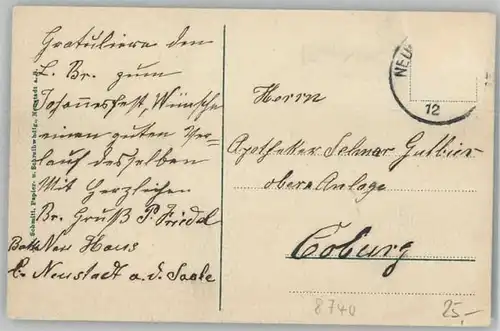 Gratuliere den
L. Br. zum
Johannesfest, Wünsche
einen guten Ver-
lauf desselben
Mit Herzlichen
Br. Gruß P. Friedel
Neu Haus
b. Neustadt a. d. Saale
Schmitt, Papier- u. Schreibwhdlg., Neustadt a. S.
NEU
12
Herrn
Apotheker Selmar Gulbier
obere Anlage
Coburg
8740
25,-